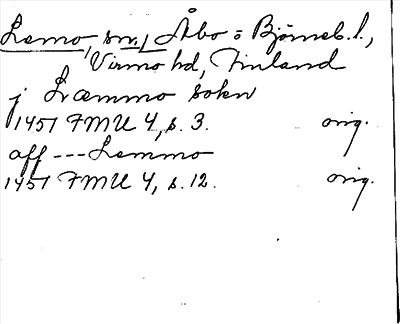 Lemo, sn, Åbo = Björneb. l.,
Virmo hd, Finland
j Læmmo sokn
1451 FMU 4, s. 3. orig.
aff --- Lemmo
1451 FMU 4, s. 12. orig.